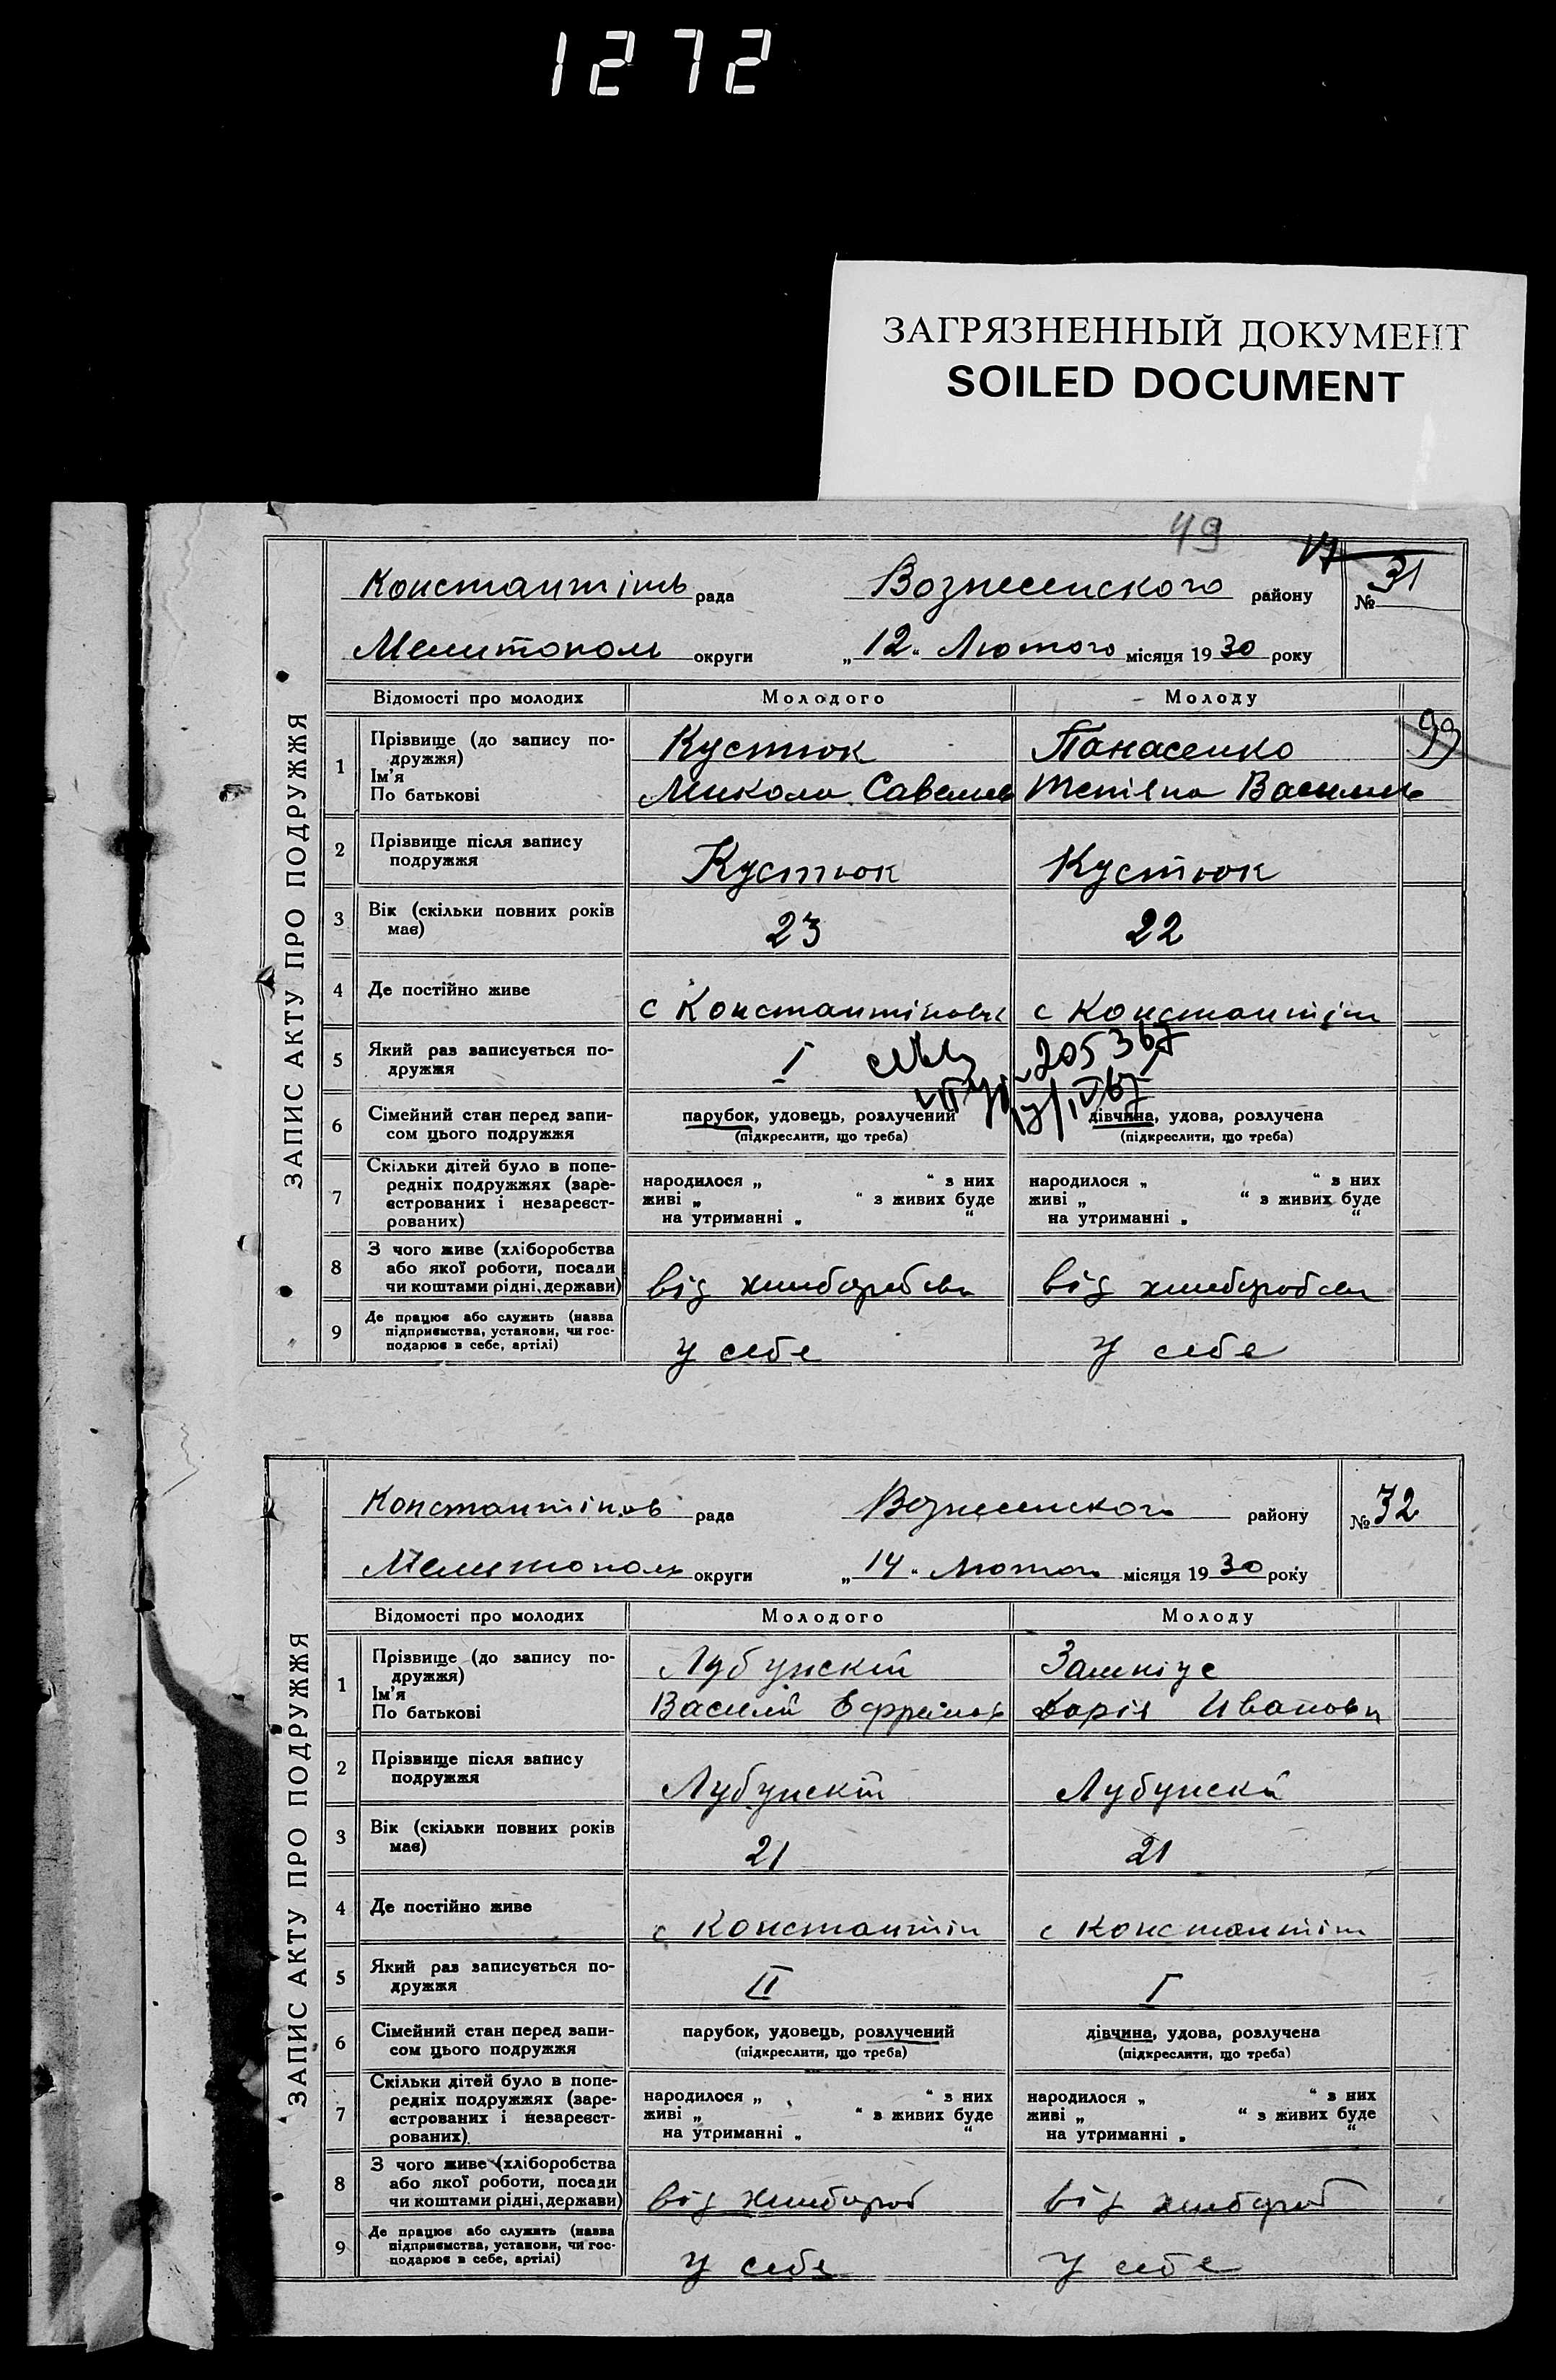 1272
ЗАГРЯЗНЕННЫЙ ДОКУМЕНТ
SOILED DOCUMENT
49
ЗАПИС АКТУ ПРО ПОДРУЖЖЯ
Константінь рада Вознесенского району № 31
Мелитополь округи „12" Лютого місяця 1930 року
Відомості про молодих Молодого Молоду
99
1 Прізвище (до запису по-
дружжя) Кустюк Панасенко
Ім'я
По батькові Микола Савелиев Тетіяна Василив
2 Прізвище після запису
подружжя Кустюк Кустюк
3 Вік (скільки повних років
має) 23 22
4 Де постійно живе с Константіновк с Константін
5 Який раз записується по-
дружжя I 205367
6 Сімейний стан перед запи-
сом цього подружжя парубок, удовець, розлучений дівчина, удова, розлучена
(підкреслити, що треба) (підкреслити, що треба)
7 Скільки дітей було в попе-
редніх подружжях (заре-
єстрованих і незареєст-
рованих) народилося „ " з них народилося „ " з них
живі „ " з живих буде живі „ " з живих буде
на утриманні „ " на утриманні „ "
8 З чого живе (хліборобства
або якої роботи, посади
чи коштами рідні, держави) від хлиборобсва від хлиборобсва
9 Де працює або служить (назва
підприємства, установи, чи гос-
подарює в себе, артілі) у себе у себе
ЗАПИС АКТУ ПРО ПОДРУЖЖЯ
Константінов рада Вознесенского району № 32
Мелитополь округи „14" Лютого місяця 1930 року
Відомості про молодих Молодого Молоду
1 Прізвище (до запису по-
дружжя) Лубунскій
Ім'я
По батькові Василий Ефремов Дарія Ивановн
2 Прізвище після запису
подружжя Лубунскій Лубунскй
3 Вік (скільки повних років
має) 21 21
4 Де постійно живе с Константін с Константін
5 Який раз записується по-
дружжя II I
6 Сімейний стан перед запи-
сом цього подружжя парубок, удовець, розлучений дівчина, удова, розлучена
(підкреслити, що треба) (підкреслити, що треба)
7 Скільки дітей було в попе-
редніх подружжях (заре-
єстрованих і незареєст-
рованих) народилося „ " з них народилося „ " з них
живі „ " з живих буде живі „ " з живих буде
на утриманні „ " на утриманні „ "
8 З чого живе (хліборобства
або якої роботи, посади
чи коштами рідні, держави) від хлибороб від хлибороб
9 Де працює або служить (назва
підприємства, установи, чи гос-
подарює в себе, артілі) у себе у себе